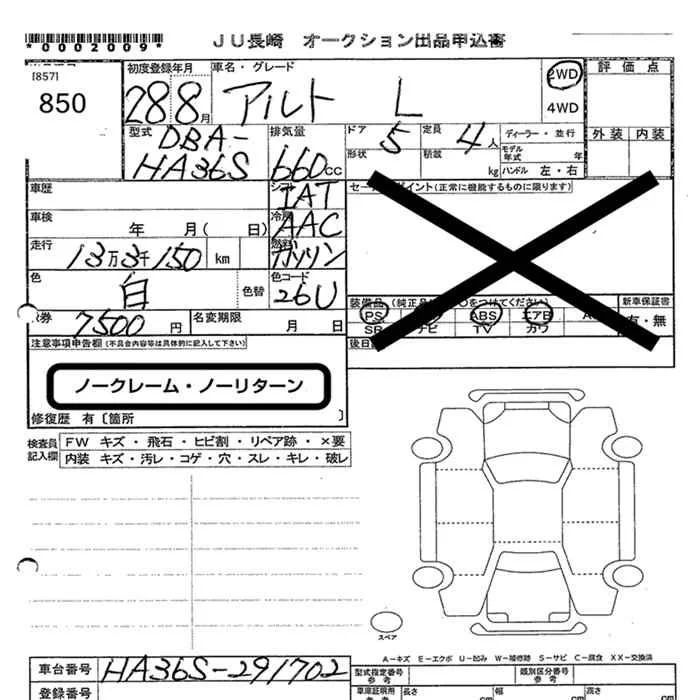 *0002009*
JU長崎 オークション出品申込書
[857]
850
初度登録年月
28 8月
車名・グレード
アルト L
2WD
4WD
評価点
外装 内装
型式
DBA-
HA36S
排気量
660cc
ドア
5
形状
定員
4人
積載
kg
ディーラー・並行
モデル年式 年
ハンドル 左・右
車歴
シフト
IAT
車検 年 月( 日)
冷房
AAC
走行
13万3千150 km
燃料
ガソリン
色
白
色替
色コード
26U
7500円
名変期限 月 日
イント(正常に機能するものに限ります)
装備品
つけてください)
PS ABS エアB
TV カワ
新車保証書
有・無
注意事項申告欄(不具合内容等は具体的に記入して下さい)
ノークレーム・ノーリターン
修復歴 有〔箇所 〕
検査員記入欄
FW キズ・飛石・ヒビ割・リペア跡・×要
内装 キズ・汚レ・コゲ・穴・スレ・キレ・破レ
スペア
A-キズ E-エクボ U-凹み W-補修跡 S-サビ C-腐食 XX-交換済
車台番号 HA36S-291702
登録番号
型式指定番号
参考
類別区分番号
参考
車庫証明用
長さ cm
幅 cm
高さ cm